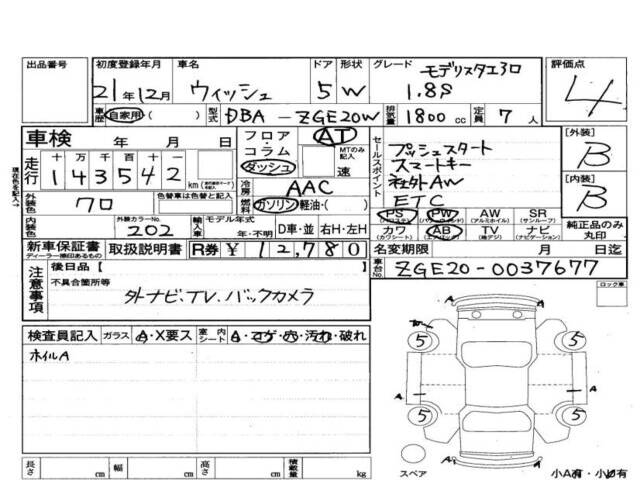 出品番号
初度登録年月
21年12月
車名
ウィッシュ
ドア
5
形状
W
グレード
モデリスタエアロ
1.8S
評価点
4
車歴
自家用( )
型式
DBA-ZGE20W
排気量
1800 cc
定員
7 人
車検 年 月 日
フロア・コラム
ダッシュ
AT
MTのみ記入
速
セールスポイント
プッシュスタート
スマートキー
社外AW
ETC
[外装]
B
[内装]
B
現在色を記入→
走行
十 万 千 百 十 一
1 4 3 5 4 2
km
冷房
AAC
外装色
クロ
色替車は色替と記入
燃料
ガソリン・軽油・( )
PS (パワステ)
PW (パワーウィンドウ)
AW (アルミホイル)
SR (サンルーフ)
カワ (カワシート)
AB (エアバック)
TV (地デジ)
ナビ (ナビゲーション)
純正品のみ丸印
内装色
外装カラーNo.
202
輸入車
モデル年式
年・不明
D車・並
右H・左H
新車保証書
ディーラー捺印あるもの
取扱説明書
R券 ¥12,780
名変期限 月 日迄
車台No.
ZGE20-0037677
注意事項
後日品[ ]
不具合箇所等
外ナビ、TV、バックカメラ
ロック車
検査員記入
ガラス
A・X要ス
室内
シート
A・コゲ・穴・汚れ・破れ
ホイルA
5 5
A A A
5 5
A
スペア
小A有・小U有
長さ cm
幅 cm
高さ cm
積載量 kg